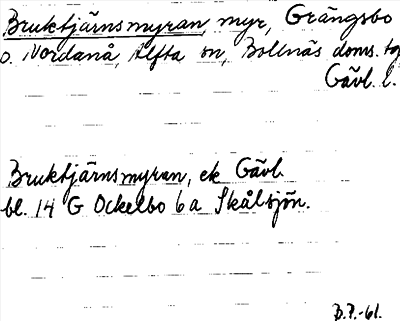 Bruktjärnsmyran, myr, Grängsbo
o. Nordanå, Alfta sn, Bollnäs doms. tg
Gävl. l.
Bruktjärnsmyran, ek Gävl.
bl. 14 G Ockelbo 6 a Skålsjön.
B.P.-61.